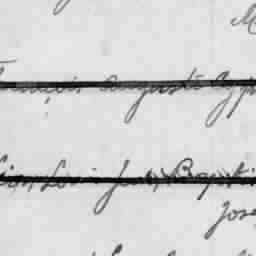 M
François Auguste Hypp
Louis Jean Baptis
Jose